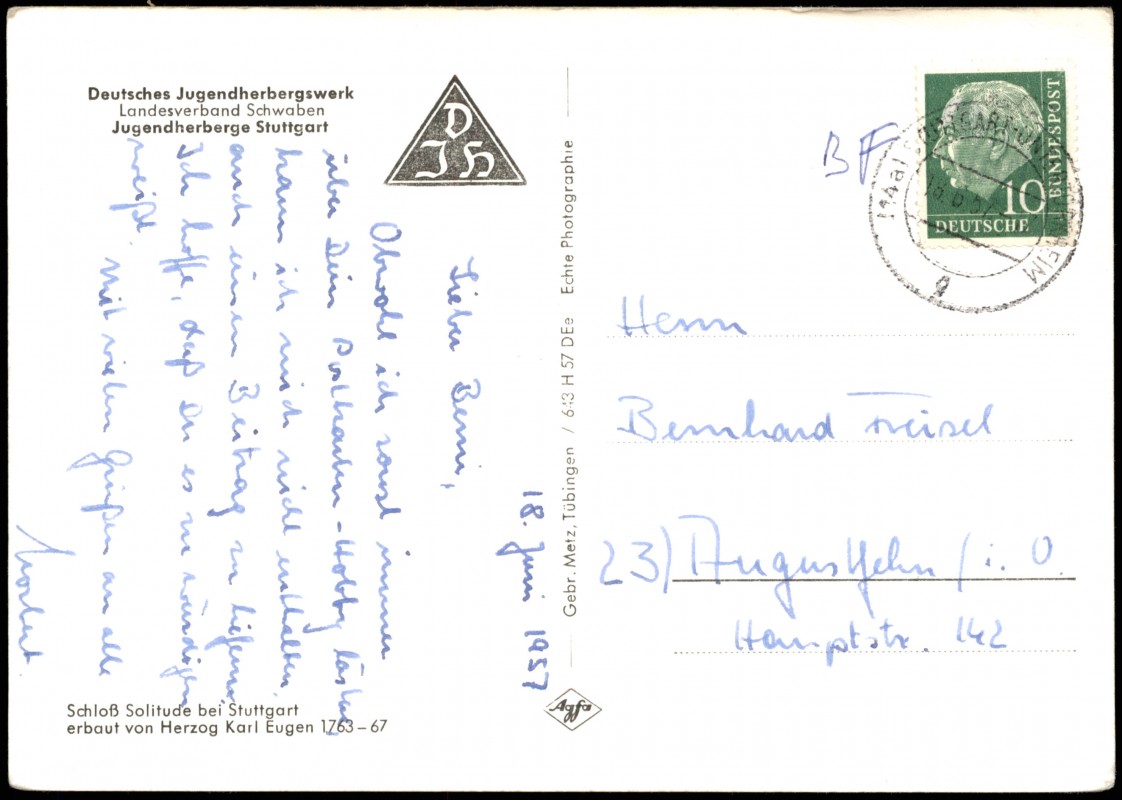 Deutsches Jugendherbergswerk
Landesverband Schwaben
Jugendherberge Stuttgart
D
JH
18. Juni 1957
Lieber Benni,
Obwohl ich sonst immer
über Dein Postkarten-Hobby lästere,
kann ich mich nicht enthalten,
auch einen Beitrag zu liefern.
Ich hoffe, daß Du es zu würdigen
weißt.
Mit vielen Grüßen an alle
Norbert
Schloß Solitude bei Stuttgart
erbaut von Herzog Karl Eugen 1763–67
Gebr. Metz, Tübingen / 643 H 57 DEe Echte Photographie
Agfa
BF
10
DEUTSCHE
BUNDESPOST
(14a)
HEIM
g
Herrn
Bernhard
23) Augustfehn / i. O.
Hauptstr. 142